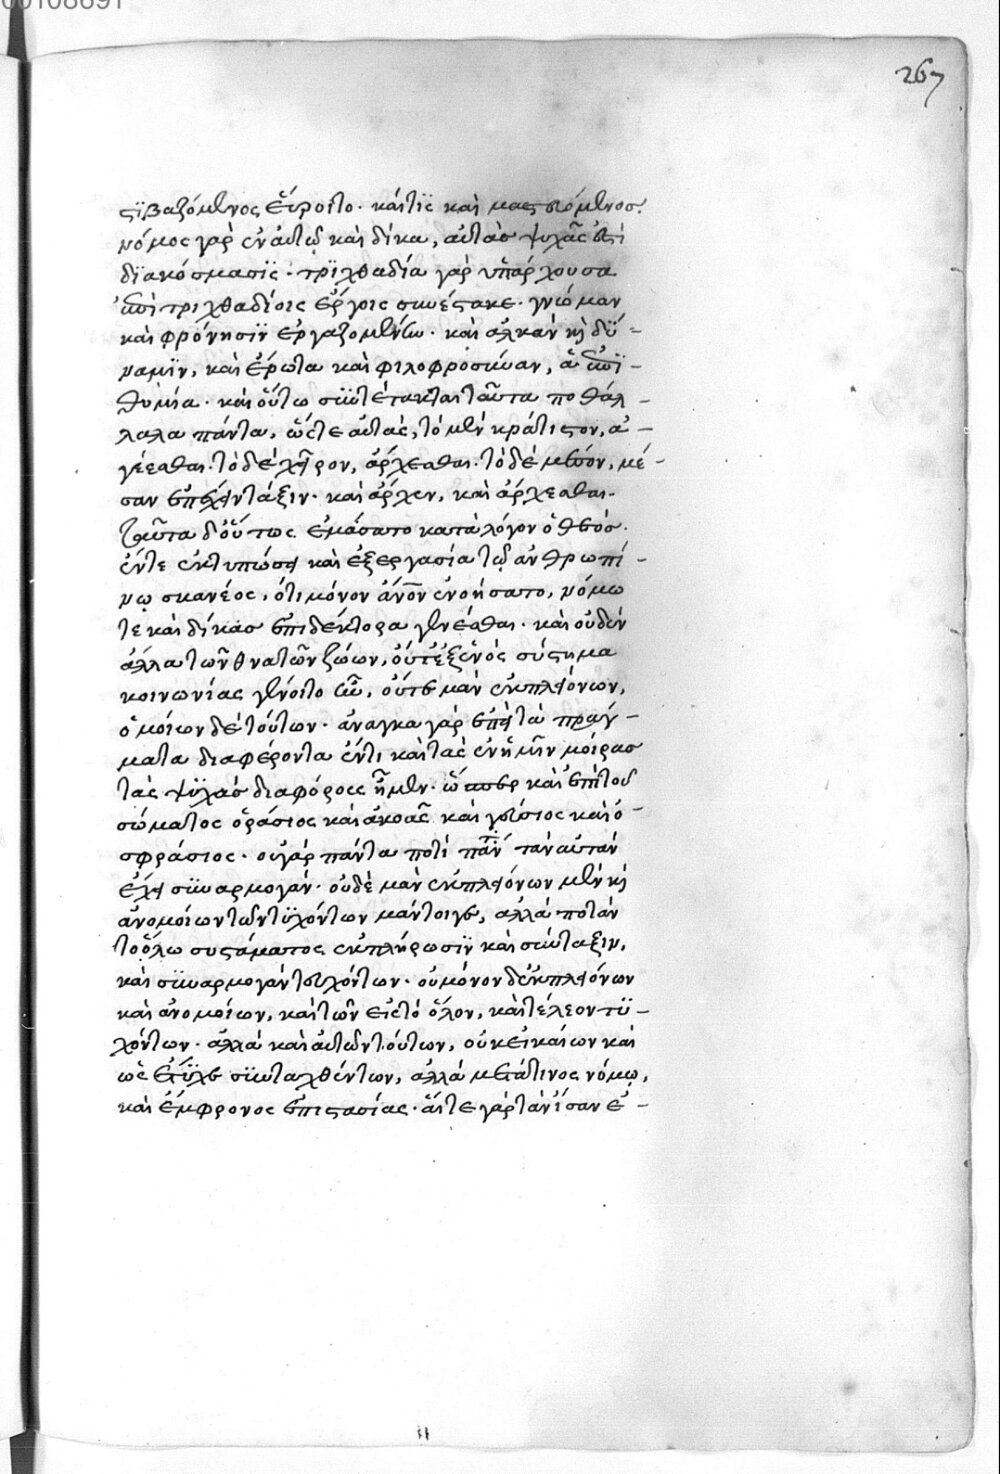 00108691
267
στιβαζόμενος εὕροιτο. καί τις καὶ μαστευόμενος.
νόμος γὰρ ἐν αὐτῷ καὶ δίκα, αὐτὰς ψυχᾶς ἐστὶ
διακόσμασις. τριχθαδία γὰρ ὑπάρχουσα
ἐπὶ τριχθαδίοις ἔργοις συνέστακε. γνώμαν
καὶ φρόνησιν ἐργαζομένω. καὶ ἀλκὰν κὴ δύ-
ναμιν, καὶ ἔρωτα καὶ φιλοφροσύναν, ἁ ἐπι-
θυμία. καὶ οὕτω συντέτακται ταῦτα ποθάλ-
λαλα πάντα, ὥστε αὐτᾶς, τὸ μὲν κράτιστον, ἁ-
γέεσθαι. τὸ δὲ χεῖρον, ἄρχεσθαι. τὸ δὲ μέσον, μέ-
σαν ἐπέχειν τάξιν. καὶ ἄρχεν, καὶ ἄρχεσθαι.
ταῦτα δ' οὕτως ἐμάσατο κατὰ λόγον ὁ θεός.
ἔντε ἐκτυπώσει καὶ ἐξεργασία τῷ ἀνθρωπί-
νῳ σκανέος, ὅτι μόνον ἄνον ἐνοήσατο, νόμω
τε καὶ δίκας ἐπιδέκτορα γενέσθαι. καὶ οὐδὲν
ἄλλα τῶν θνατῶν ζώων, οὔτ' ἐξ ἑνὸς σύστημα
κοινωνίας γένοιτο ὦν, οὔτε μὰν ἐκ πλειόνων,
ὁμοίων δὲ τούτων. ἀνάγκα γὰρ ἐπεὶ τὰ πράγ-
ματα διαφέροντα ἐντὶ καὶ τὰς ἐν ἡμῖν μοίρας
τὰς ψυχὰς διαφόρους ἦμεν. ὥσπερ καὶ ἐπὶ τοῦ
σώματος ὁράσιος καὶ ἀκοᾶς καὶ γεύσιος καὶ ὀ-
σφράσιος. οὐ γὰρ πάντα ποτὶ πᾶν τὰν αὐτὰν
ἔχει συναρμογάν. οὐδὲ μὰν ἐκ πλειόνων μὲν κὴ
ἀνομοίων τῶν τυχόντων μάντοιγε, ἀλλὰ ποτὰν
τοῦ ὅλω συστάματος ἐκπλήρωσιν καὶ σύνταξιν,
καὶ συναρμογὰν τυχόντων. οὐ μόνον δ' ἐκ πλειόνων
καὶ ἀνομοίων, καὶ τῶν εἰς τὸ ὅλον, καὶ τέλεον τυ-
χόντων. ἀλλὰ καὶ αὐτῶν τούτων, οὐκ εἰκαίων καὶ
ὡς ἔτυχε συνταχθέντων, ἀλλὰ μετά τινος νόμῳ,
καὶ ἔμφρονος ἐπιστασίας. αἴτε γὰρ τὰν ἴσαν ἐ-